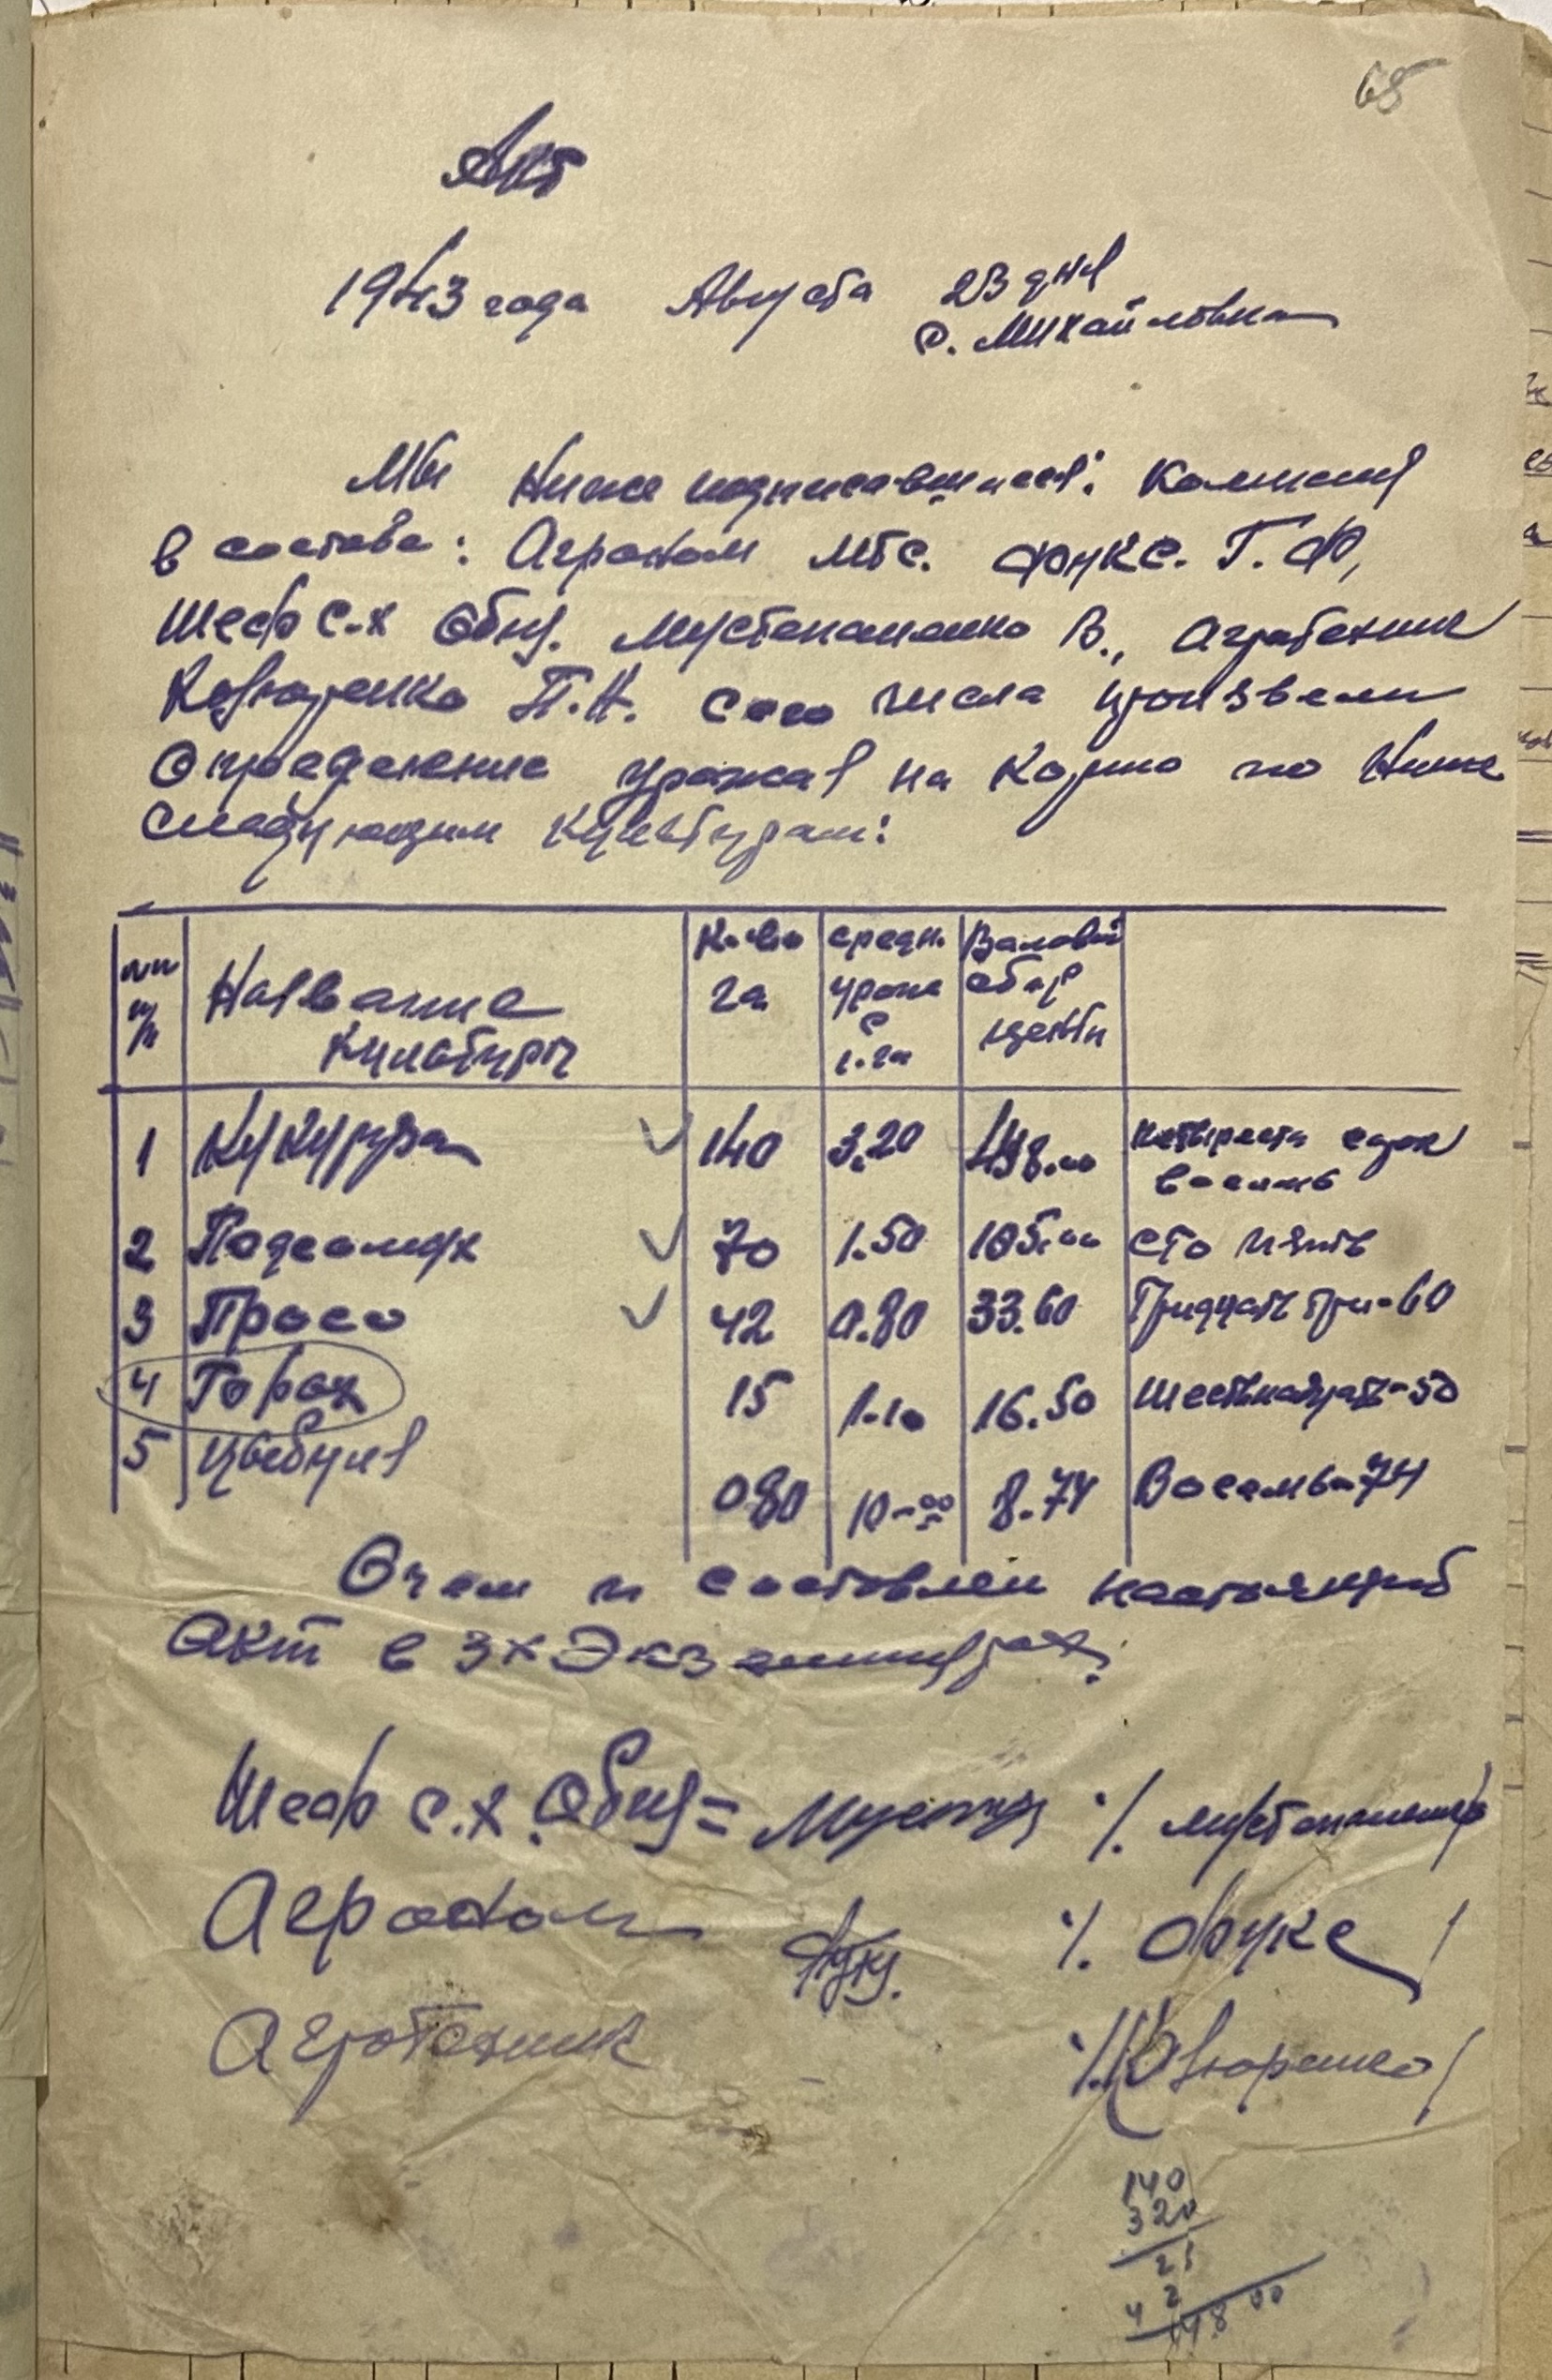 68
Акт
1943 года Августа 23 дня
с. Михайловка
Мы Ниже подписавшиеся: Комиссия
в составе: Агроном МТС. Фукс. Г. Ф,
Шеф с.х Общ. Мустопаненко В., Агротехник
Ковюренко П.Н. сего числа произвели
Определение урожая на Корню по Ниже
Следующим культурам:
пп п/п Название Культуры К-во га средн. урожа с 1.га Валовый сбор центн
1 Кукуруза 140 3.20 448.00 Четыреста сорок восемь
2 Подсолнух 70 1.50 105.00 сто пять
3 Просо 42 0.80 33.60 Тридцать три-60
4 Горох 15 1.10 16.50 Шестьнадцать-50
5 Цыбуля 080 10-00 8.74 Восемь-74
О чем и составлен настоящий
Акт в 3х Экземплярах.
Шеф с.х. Общ= /. Мустопаненко/
Агроном /. Фукс /
Агротехник /. Ковюренко/
140
320
28
42
448 00